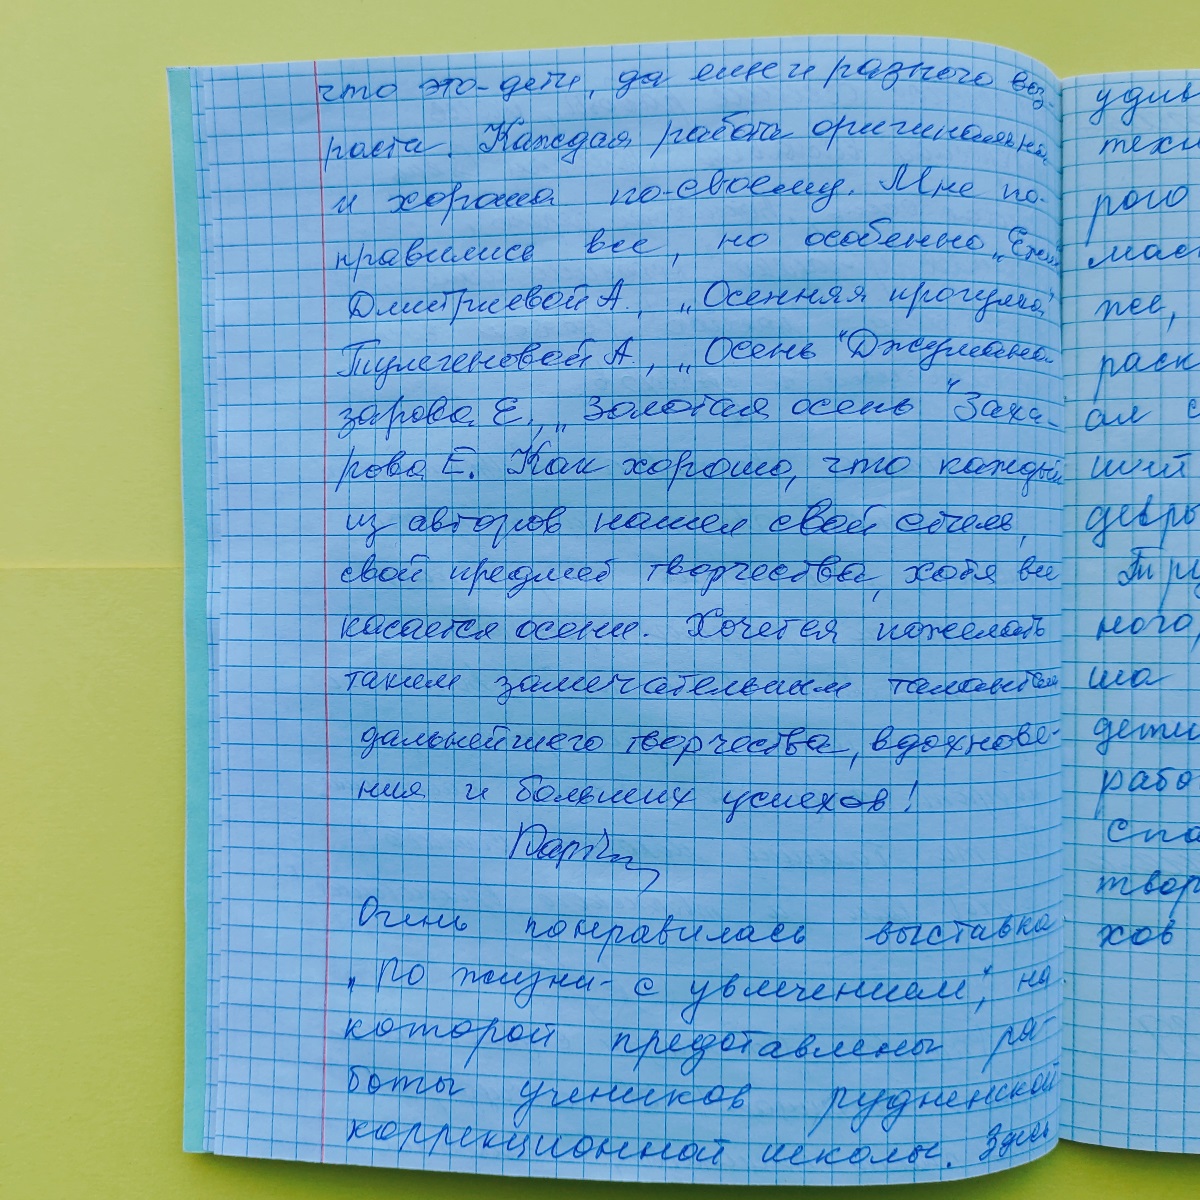 что это-дети, да еще и разного воз-
раста. Каждая работа оригинальна
и хороша по-своему. Мне по-
нравились все, но особенно „Ежик"
Дмитриевой А., „Осенняя прогулка"
Тулегеновой А., „Осень" Джумана-
зарова Е., „Золотая осень" Заха-
рова Е. Как хорошо, что каждый
из авторов нашел свой стиль,
свой предмет творчества, хотя все
касается осени. Хочется пожелать
таким замечательным талантам
дальнейшего творчества, вдохнове-
ния и больших успехов!
Очень понравилась выставка
„По жизни - с увлечением", на
которой представлены ра-
боты учеников рудненской
коррекционной школы. Здесь
удив
техн
рого
мас
же,
раск
ал с
ший
девры
Тру
ного,
ша
дети
рабо
Спа
твор
хов